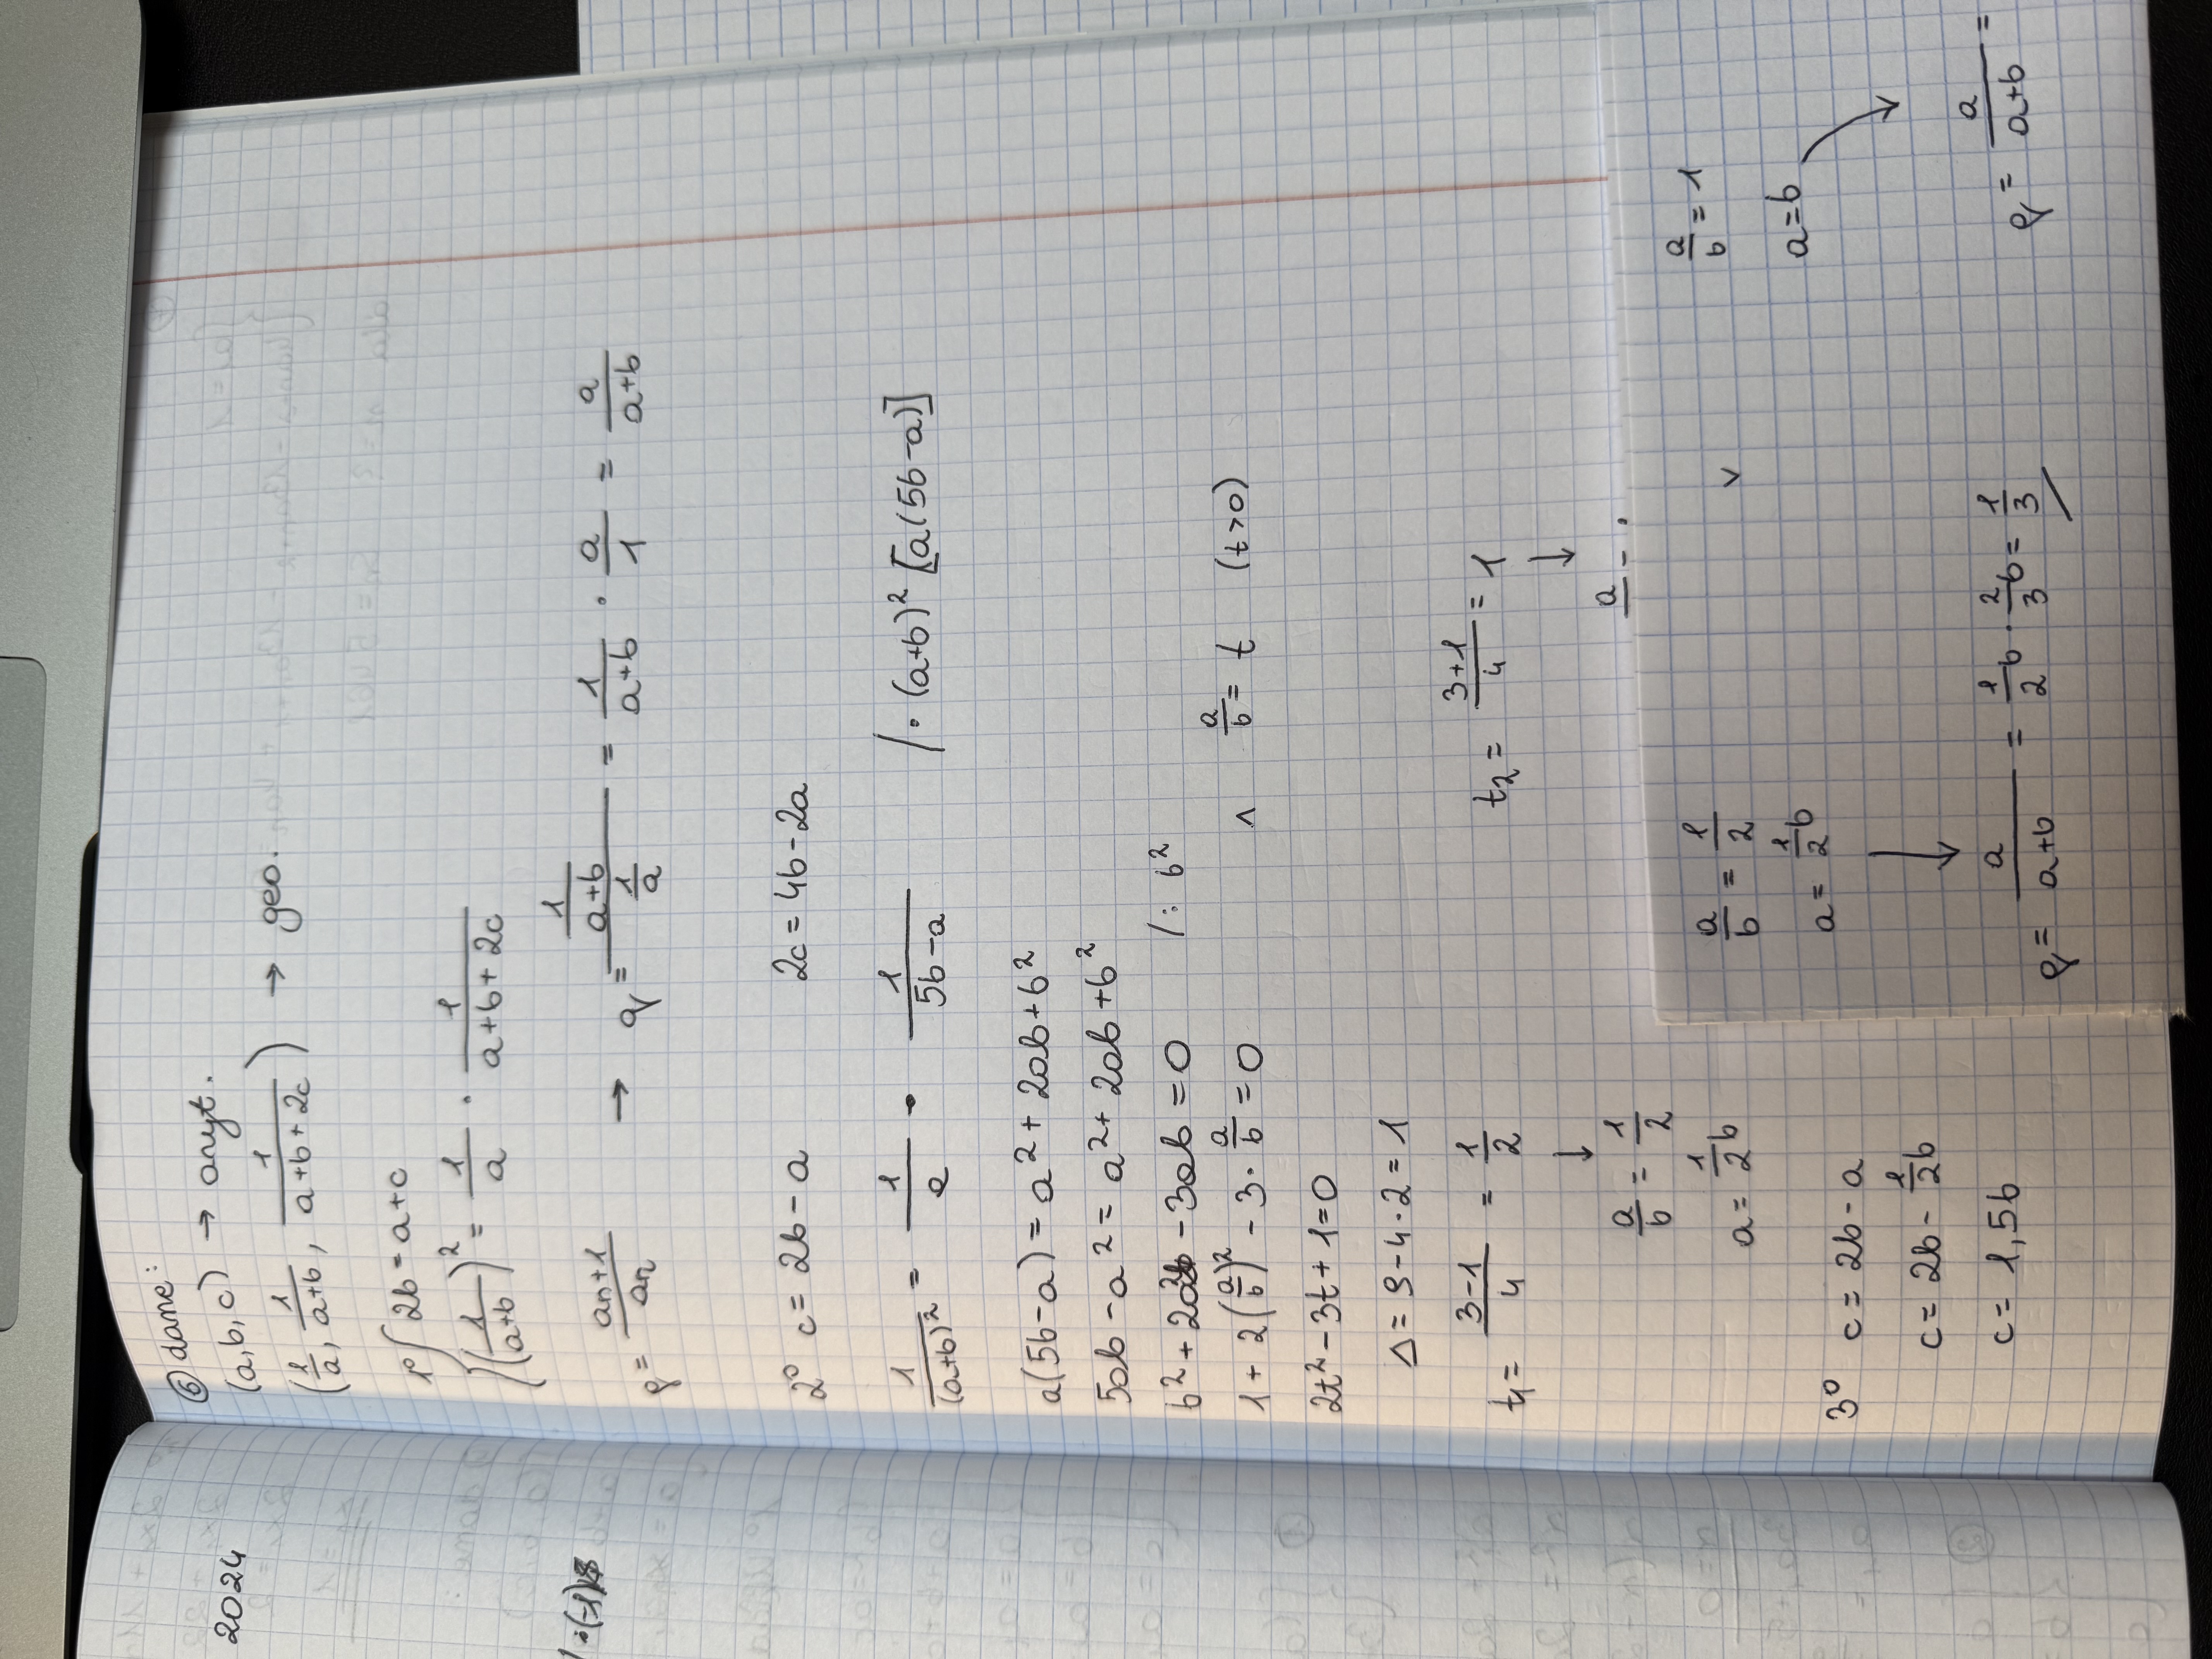 2024
/·(-1)
⑥ dane:
(a,b,c) → aryt.
(1/a, 1/(a+b), 1/(a+b+2c)) → geo.
1° { 2b = a+c
(1/(a+b))² = 1/a · 1/(a+b+2c)
q = an+1/an → q = (1/(a+b))/(1/a) = 1/(a+b) · a/1 = a/(a+b)
2° c = 2b - a 2c = 4b - 2a
1/(a+b)² = 1/a · 1/(5b-a) /· (a+b)² [a(5b-a)]
a(5b-a) = a² + 2ab + b²
5ab - a² = a² + 2ab + b²
b² + 2a² - 3ab = 0 /: b²
1 + 2(a/b)² - 3 · a/b = 0 ∧ a/b = t (t>0)
2t² - 3t + 1 = 0
Δ = 9 - 4·2 = 1
t1 = (3-1)/4 = 1/2 t2 = (3+1)/4 = 1
↓ ↓
a/b = 1/2 a
a = 1/2b
3° c = 2b - a
c = 2b - 1/2b
c = 1,5b
a/b = 1/2 ∨ a/b = 1
a = 1/2b a = b
q = a/(a+b) = 1/2b · 2/3b = 1/3 q = a/(a+b) =